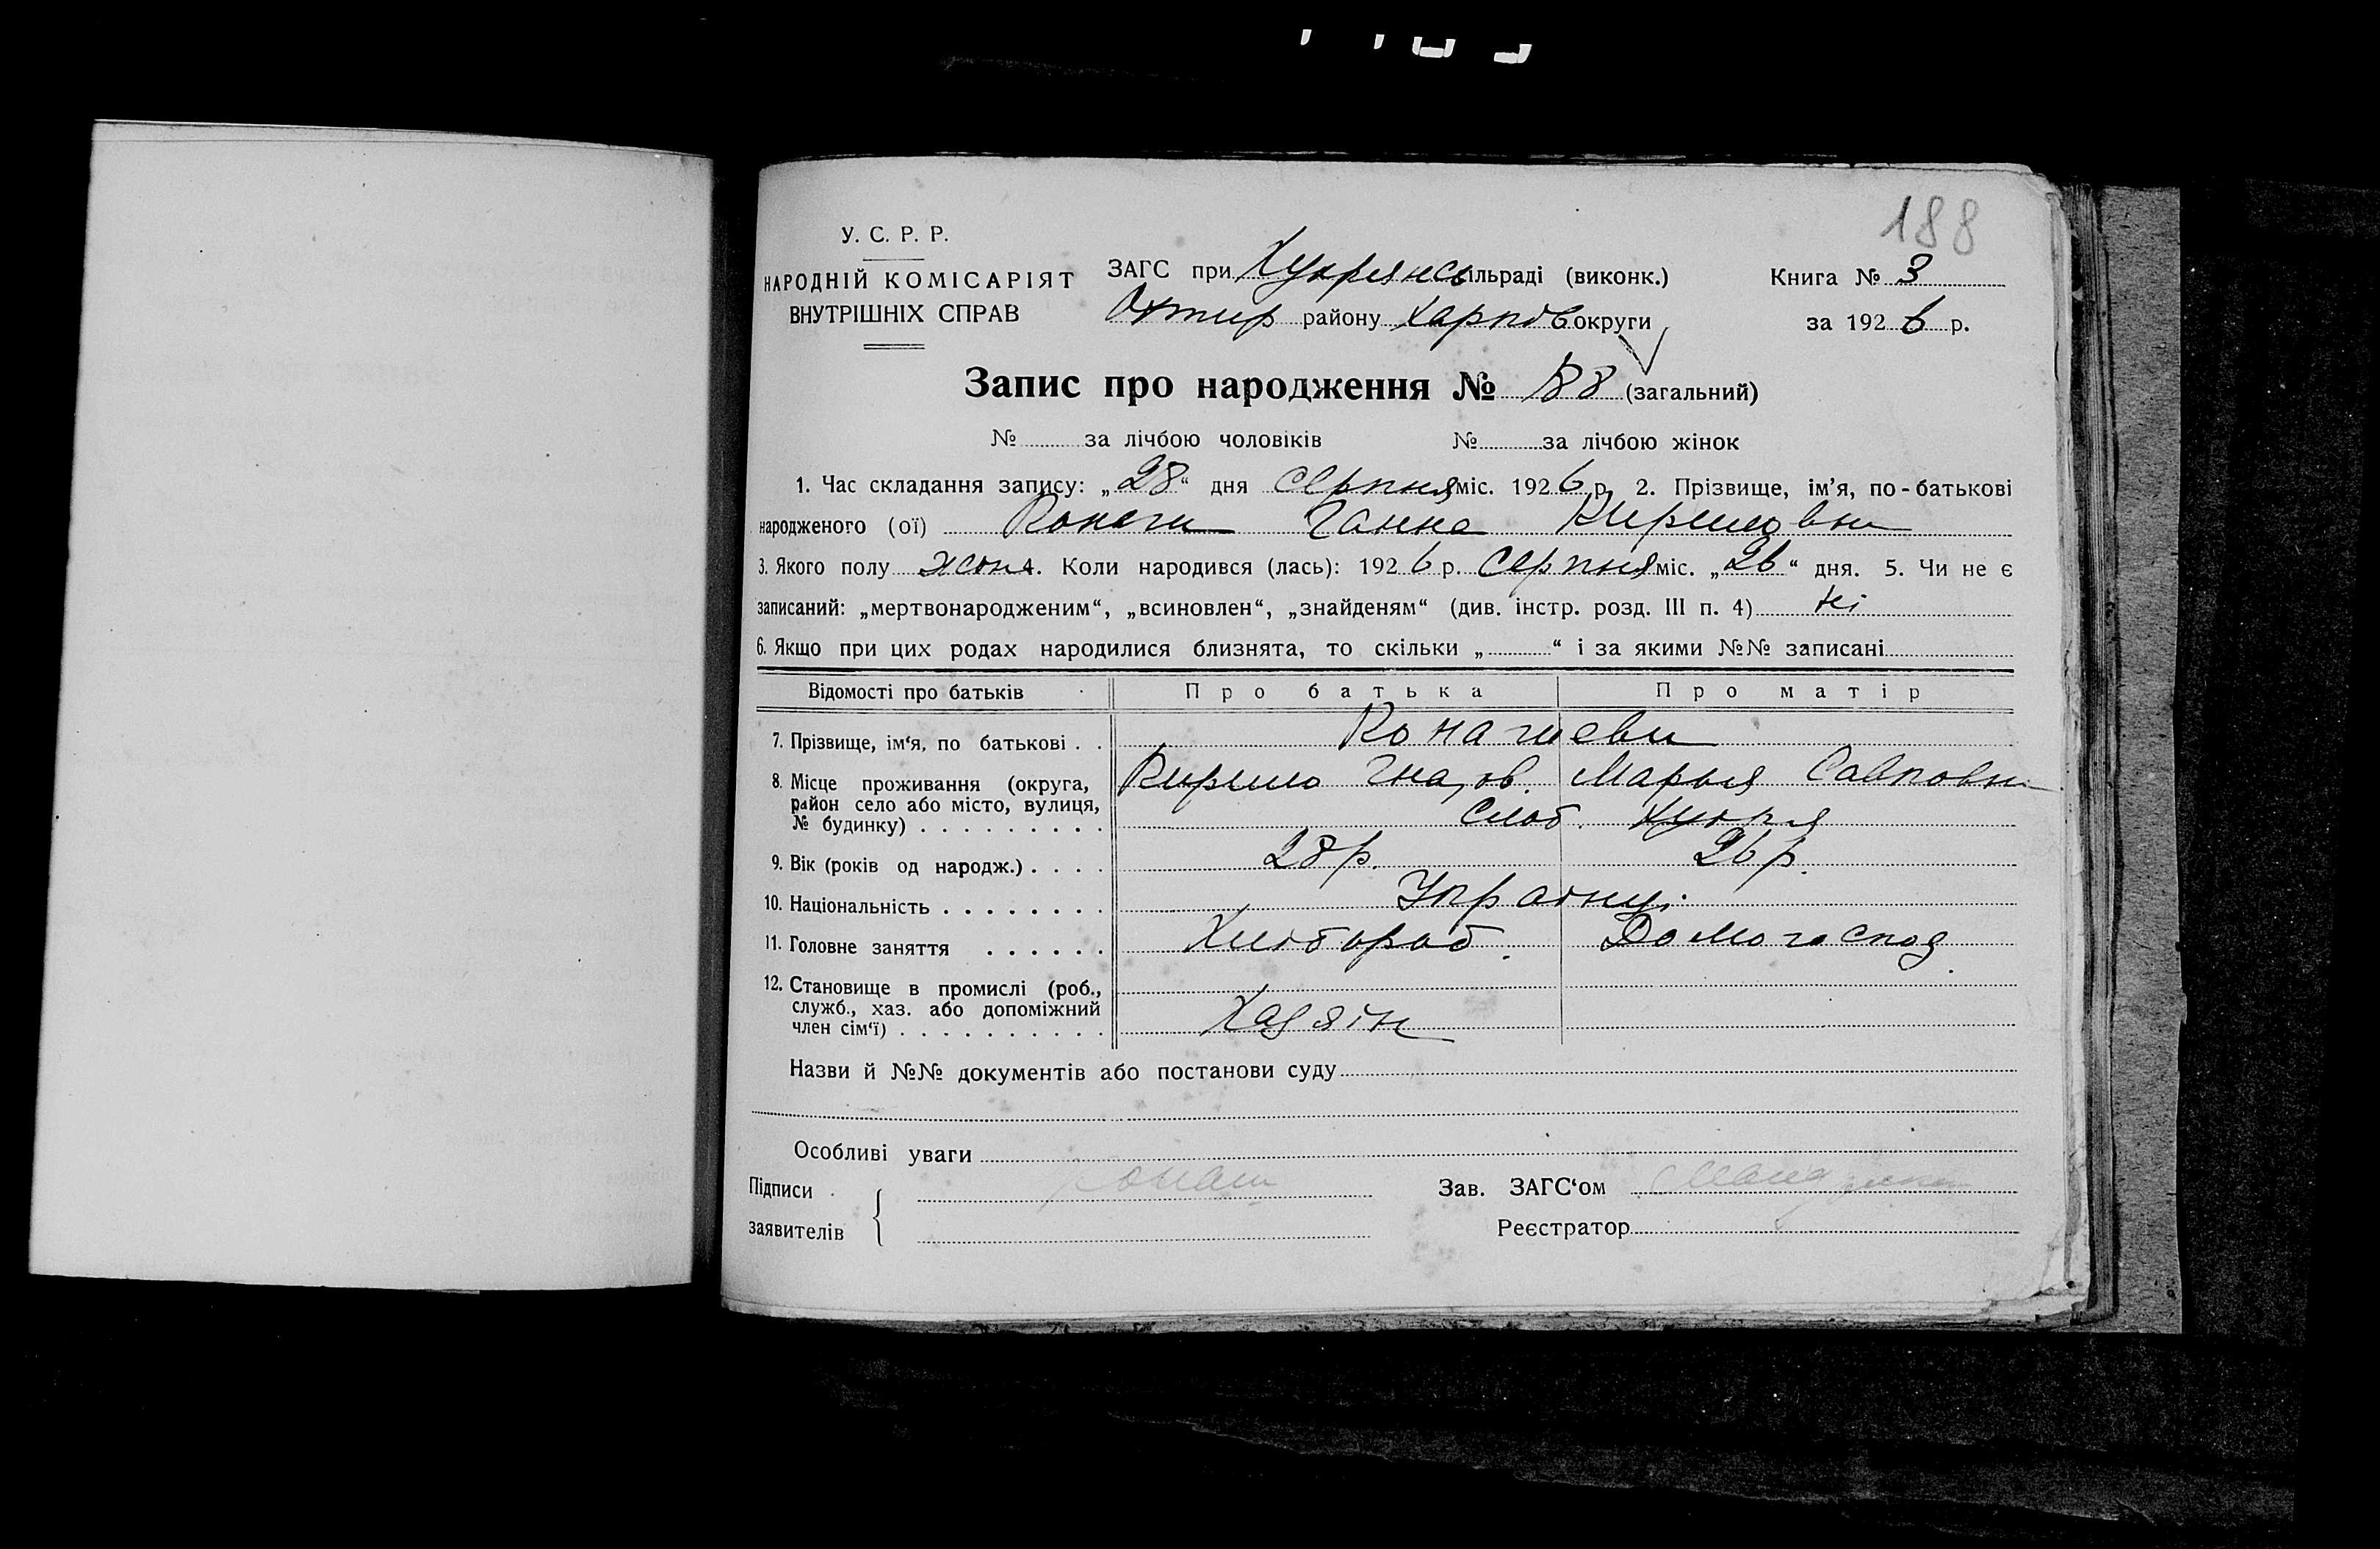 188
У. С. Р. Р.
НАРОДНІЙ КОМІСАРІЯТ
ВНУТРІШНІХ СПРАВ
ЗАГС при Хухрянсь ільраді (виконк.)
Охтир району Харків округи
Книга № 3
за 1926 р.
Запис про народження № 188 (загальний)
№ за лічбою чоловіків № за лічбою жінок
1. Час складання запису: „28“ дня серпня міс. 1926 р. 2. Прізвище, ім’я, по-батькові
народженого (ої) Ганна Кириловна
3. Якого полу жон 4. Коли народився (лась): 1926 р. Серпня міс. „26“ дня. 5. Чи не є
записаний: „мертвонародженим“, „всиновлен“, „знайденям“ (див. інстр. розд. III п. 4) Ні
6. Якщо при цих родах народилися близнята, то скільки „ “ і за якими №№ записані
Відомості про батьків Про батька Про матір
7. Прізвище, ім‘я, по батькові
8. Місце проживання (округа, район село або місто, вулиця, № будинку)
Кирило Гнатов. Марья Савковна
слоб. Хухря
9. Вік (років од народж.) 28 р. 26 р.
10. Національність Українці
11. Головне заняття Хлібороб. Домогоспод.
12. Становище в промислі (роб., служб., хаз. або допоміжний член сім‘ї) Хазяін
Назви й №№ документів або постанови суду
Особливі уваги
Підписи
заявителів
Зав. ЗАГС‘ом
Реєстратор